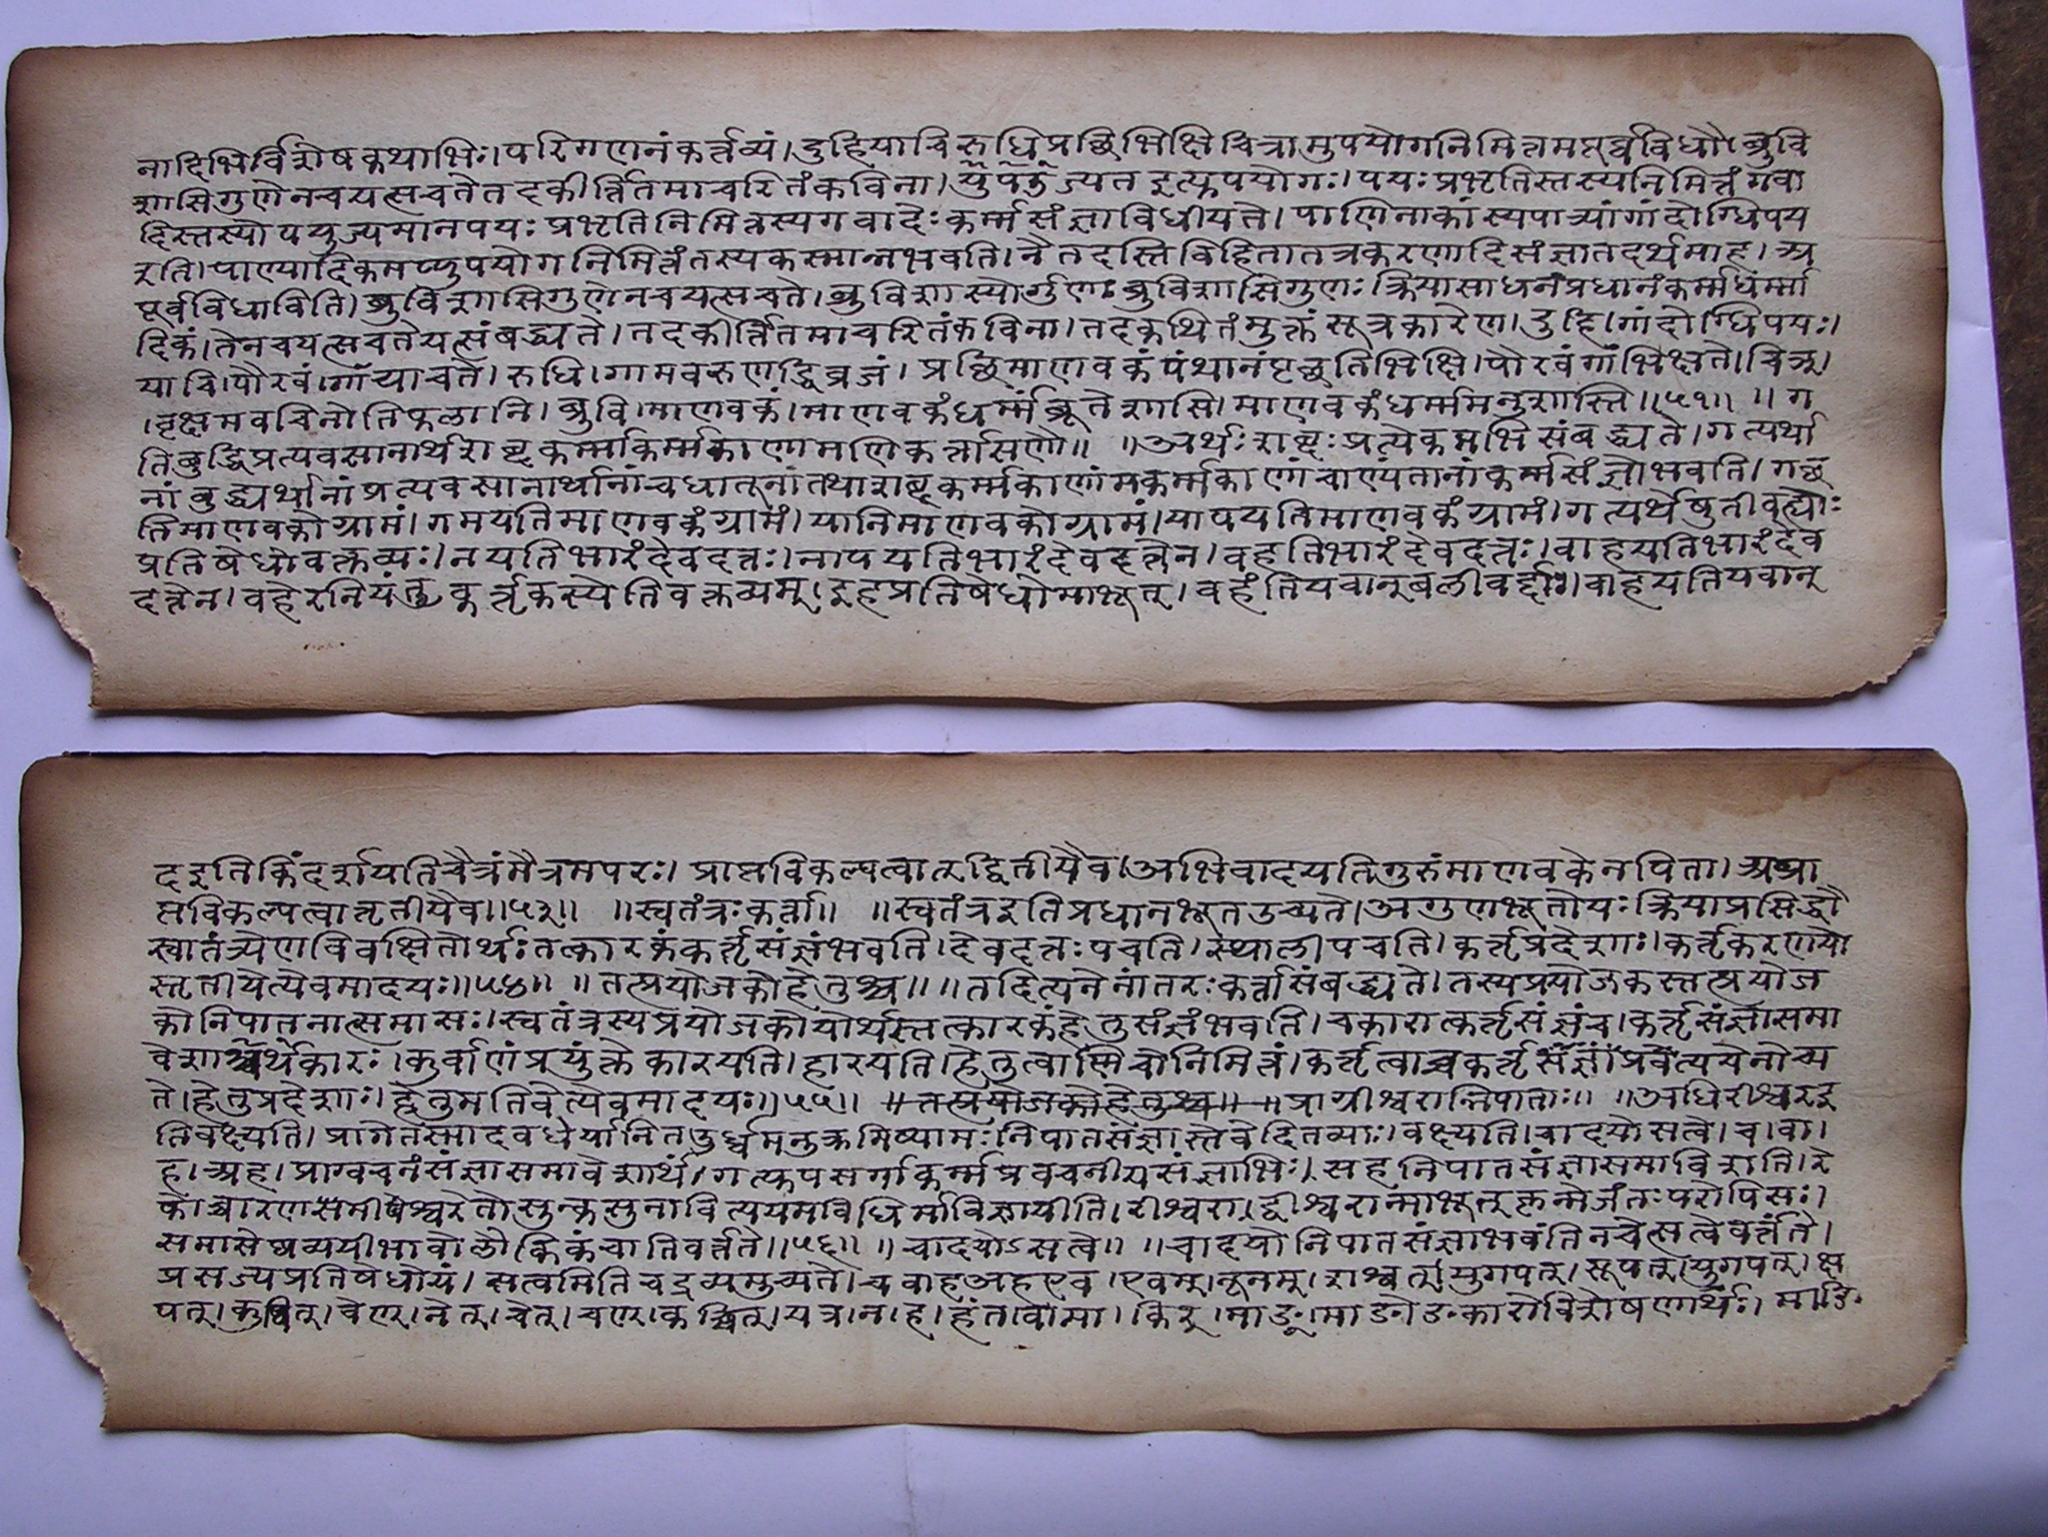 नादिभिर्विशेषकथाभिः।परिगणनंकर्त्तव्यं।दुहियाचिरुधिप्रछिभिक्षिचित्रामुपयोगनिमित्तमपूर्वविधौ।ब्रुवि
शासिगुणेनचयत्सचतेतदकीर्त्तितमाचरितंकविना। इत्युपयोगः।पयःप्रभृतिस्तस्यनिमित्तंगवा
दिस्तस्योपयुज्यमानपयःप्रभृतिनिमित्तस्यगवादेःकर्म्मसंज्ञाविधीयते।पाणिनाकांस्यपात्र्यांगांदोग्धिपय
इति।पाण्यादिकमप्युपयोगनिमित्तंतस्यकस्मान्नभवति।नैतदस्तिविहितातत्रकरणादिसंज्ञातदर्थमाह।अ
पूर्वविधाविति।ब्रुविशासिगुणेनचयत्सचते।ब्रुविशास्योर्गुणःब्रुविशासिगुणःक्रियासाधनंप्रधानंकर्म्मधर्म्मा
दिकं।तेनचयत्सचतेयत्संबद्ध्यते।तदकीर्त्तितमाचरितंकविना।तदकथितंमुक्तंसूत्रकारेण।दुहि।गांदोग्धिपयः।
याचि।पौरवं।गांयाचते।रुधि।गामवरुणद्धिव्रजं।प्रछिमाणवकंपंथानंपृच्छतिभिक्षि।पौरवंगांभिक्षते।चिञ्।
।वृक्षमवचिनोतिफलानि।ब्रुवि।माणवकं।माणवकंधर्म्मंब्रूतेशासि।माणवकंधर्म्ममनुशास्ति॥५१॥ ॥ग
तिबुद्धिप्रत्यवसानार्थशब्दकर्म्माकर्म्मकाणामणिकर्त्तासणौ॥ ॥अर्थःशब्दःप्रत्येकमभिसंबद्ध्यते।गत्यर्था
नांबुद्ध्यर्थानांप्रत्यवसानार्थानांचधातूनांतथाशब्दकर्म्मकाणांमकर्म्मकाणांचाण्यतानांकर्म्मसंज्ञोभवति।गछ
तिमाणवकोग्रामं।गमयतिमाणवकंग्रामं।यातिमाणवकोग्रामं।यापयतिमाणवकंग्रामं।गत्यर्थेषुनीवह्योः
प्रतिषेधोवक्तव्यः।नयतिभारंदेवदत्तः।नापयतिभारंदेवदत्तेन।वहतिभारंदेवदत्तः।वाहयतिभारंदेव
दत्तेन।वहेरनियंतृकर्तृकस्येतिवक्तव्यम्।इहप्रतिषेधोमाभूत्।वहंतियवान्बलीवर्द्दाः।वाहयतियवान्
दइतिकिंदर्शयतिचैत्रंमैत्रमपरः।प्राप्तविकल्पत्वात्द्वितीयैव।अभिवादयतिगुरुंमाणवकेनपिता।अप्रा
प्तविकल्पत्वात्तृतीयैव॥५३॥ ॥स्वतंत्रःकर्त्ता॥ ॥स्वतंत्रइतिप्रधानभूतउच्यते।अगुणभूतोयःक्रियाप्रसिद्धौ
स्वातंत्र्येणविवक्षितोर्थःतत्कारकंकर्तृसंज्ञंभवति।देवदत्तःपचति।स्थालीपचति।कर्तृप्रदेशाः।कर्तृकरणयो
स्तृतीयेत्येवमादयः॥५४॥ ॥तत्प्रयोजकोहेतुश्च॥॥तदित्यनेनांतरःकर्त्तासंबद्ध्यते।तस्यप्रयोजकस्तत्प्रयोज
कोनिपातनात्समासः।स्वतंत्रस्यप्रयोजकोयोर्थस्तत्कारकंहेतुसंज्ञंभवति।चकारात्कर्तृसंज्ञंच।कर्तृसंज्ञासमा
वेशार्थश्चकारः।कुर्वाणंप्रयुंक्तेकारयति।हारयति।हेतुत्वाण्णिचोनिमित्तं।कर्तृत्वाच्चकर्तृसंज्ञां
ते।हेतुप्रदेशाः।हेतुमतिचेत्येवमादयः॥५५॥ ॥तत्प्रयोजकोहेतुश्च॥ ॥प्राग्रीश्वरान्निपाताः॥ ॥अधिरीश्वरइ
तिवक्ष्यति।प्रागेतस्मादवधेर्यानितऊर्ध्वमनुक्रमिष्यामःनिपातसंज्ञास्तेवेदितव्याः।वक्ष्यति।चादयोसत्वे।च।वा।
ह।अह।प्राग्वचनंसंज्ञासमावेशार्थं।गत्युपसर्गाकर्म्मप्रवचनीयसंज्ञाभिः।सहनिपातसंज्ञासमाविशति।रे
फोच्चारणंसमीपेश्वरेतोसुन्कसुनावित्ययमवधिर्माविज्ञायीति।रीश्वरा।द्वीश्वरान्माभूत्कृन्मेजंतःपरोपिसः।
समासेष्वव्ययीभावोलौकिकंचातिवर्त्तते॥५६॥ ॥चादयोऽसत्वे॥ ॥चादयोनिपातसंज्ञाभवंतिनचेत्सत्वेवर्त्तते।
प्रसज्यप्रतिषेधोयं।सत्वमितिचद्रव्यमुच्यते।चवाहअहएव।एवम्।नूनम्।शश्वत्।युगपत्।सूपत्।युगपत्।क्ष
पत्।कुवित्।वेण्।नेत्।चेत्।चण्।कच्चित्।यत्र।न।ह।हंत।वा।मा।किर्।माङ्।माङोङकारोविशेषणार्थः।माङि